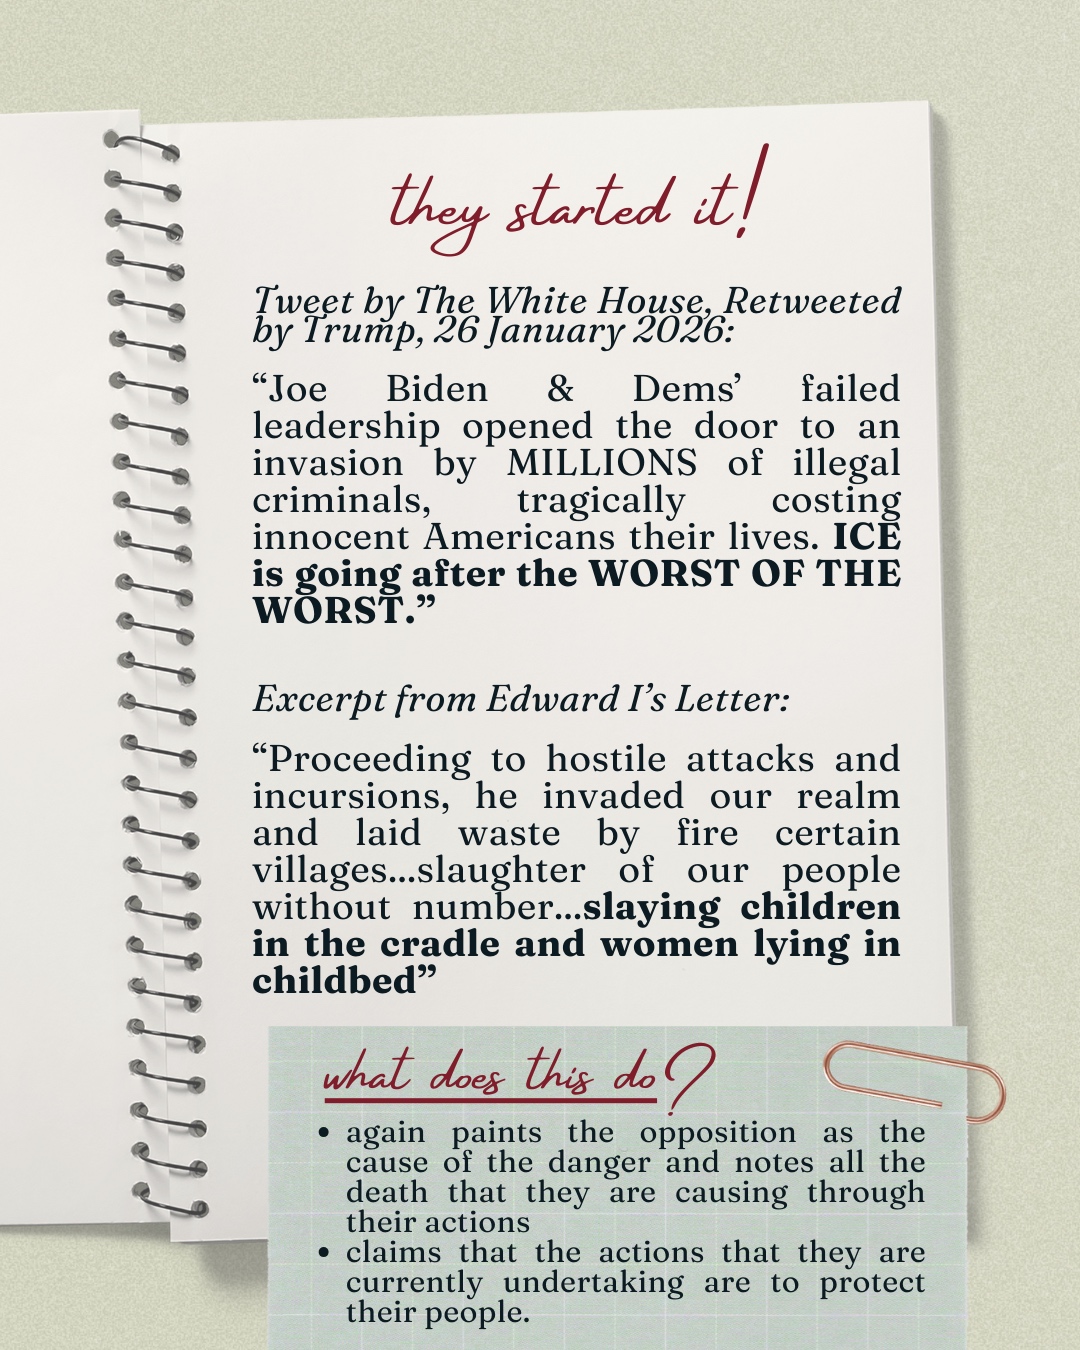 they started it!
Tweet by The White House, Retweeted
by Trump, 26 January 2026:
“Joe Biden & Dems’ failed
leadership opened the door to an
invasion by MILLIONS of illegal
criminals, tragically costing
innocent Americans their lives. ICE
is going after the WORST OF THE
WORST.”
Excerpt from Edward I’s Letter:
“Proceeding to hostile attacks and
incursions, he invaded our realm
and laid waste by fire certain
villages...slaughter of our people
without number...slaying children
in the cradle and women lying in
childbed”
what does this do?
• again paints the opposition as the
cause of the danger and notes all the
death that they are causing through
their actions
• claims that the actions that they are
currently undertaking are to protect
their people.